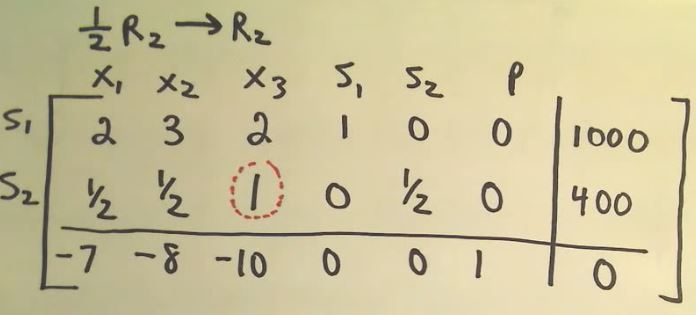 ½ R₂ → R₂
x₁ x₂ x₃ s₁ s₂ P
s₁ 2 3 2 1 0 0 1000
s₂ ½ ½ 1 0 ½ 0 400
-7 -8 -10 0 0 1 0